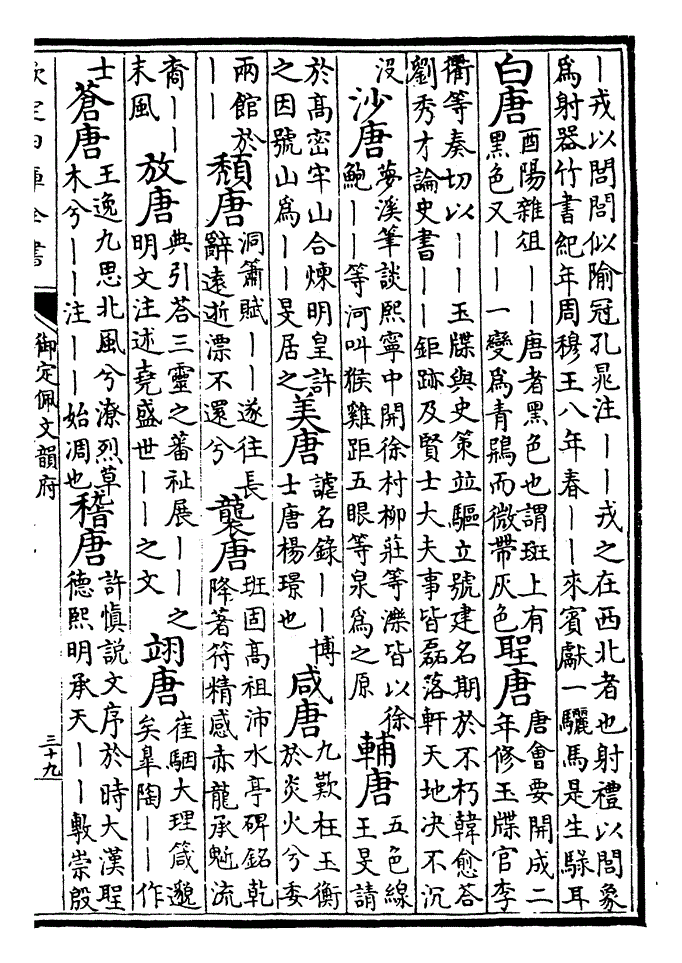 ｜戎以閭閭似隃冠孔晁注｜｜戎之在西北者也射禮以閭象
爲射器竹書紀年周穆王八年春｜｜來賓獻一驪馬是生騄耳
白唐
酉陽雜俎｜｜唐者黑色也謂斑上有
黑色又｜｜一變爲青鶂而微帶灰色
聖唐
唐會要開成二
年修玉牒官李
衢等奏切以｜｜玉牒與史策竝驅立號建名期於不朽韓愈荅
劉秀才論史書｜｜鉅跡及賢士大夫事皆磊落軒天地决不沉
沒
沙唐
夢溪筆談熙寧中開徐村柳莊等濼皆以徐
鮑｜｜等河叫猴雞距五眼等泉爲之原
輔唐
五色線
王旻請
於高密牢山合煉明皇許
之因號山爲｜｜旻居之
美唐
謔名錄｜｜博
士唐楊璟也
咸唐
九歎枉玉衡
於炎火兮委
兩館於
｜｜
頹唐
洞簫賦｜｜遂往長
辭遠逝漂不還兮
襲唐
班固高祖沛水亭碑銘乾
降著符精感赤龍承魁流
裔｜｜
末風
放唐
典引荅三靈之蕃祉展｜｜之
明文注述堯盛世｜｜之文
翊唐
崔駰大理箴邈
矣臯陶｜｜作
士
蒼唐
王逸九思北風兮潦烈草
木兮｜｜注｜｜始凋也
稽唐
許慎說文序於時大漢聖
德熙明承天｜｜敷崇殷
欽定四庫全書
御定佩文韻府
三十九